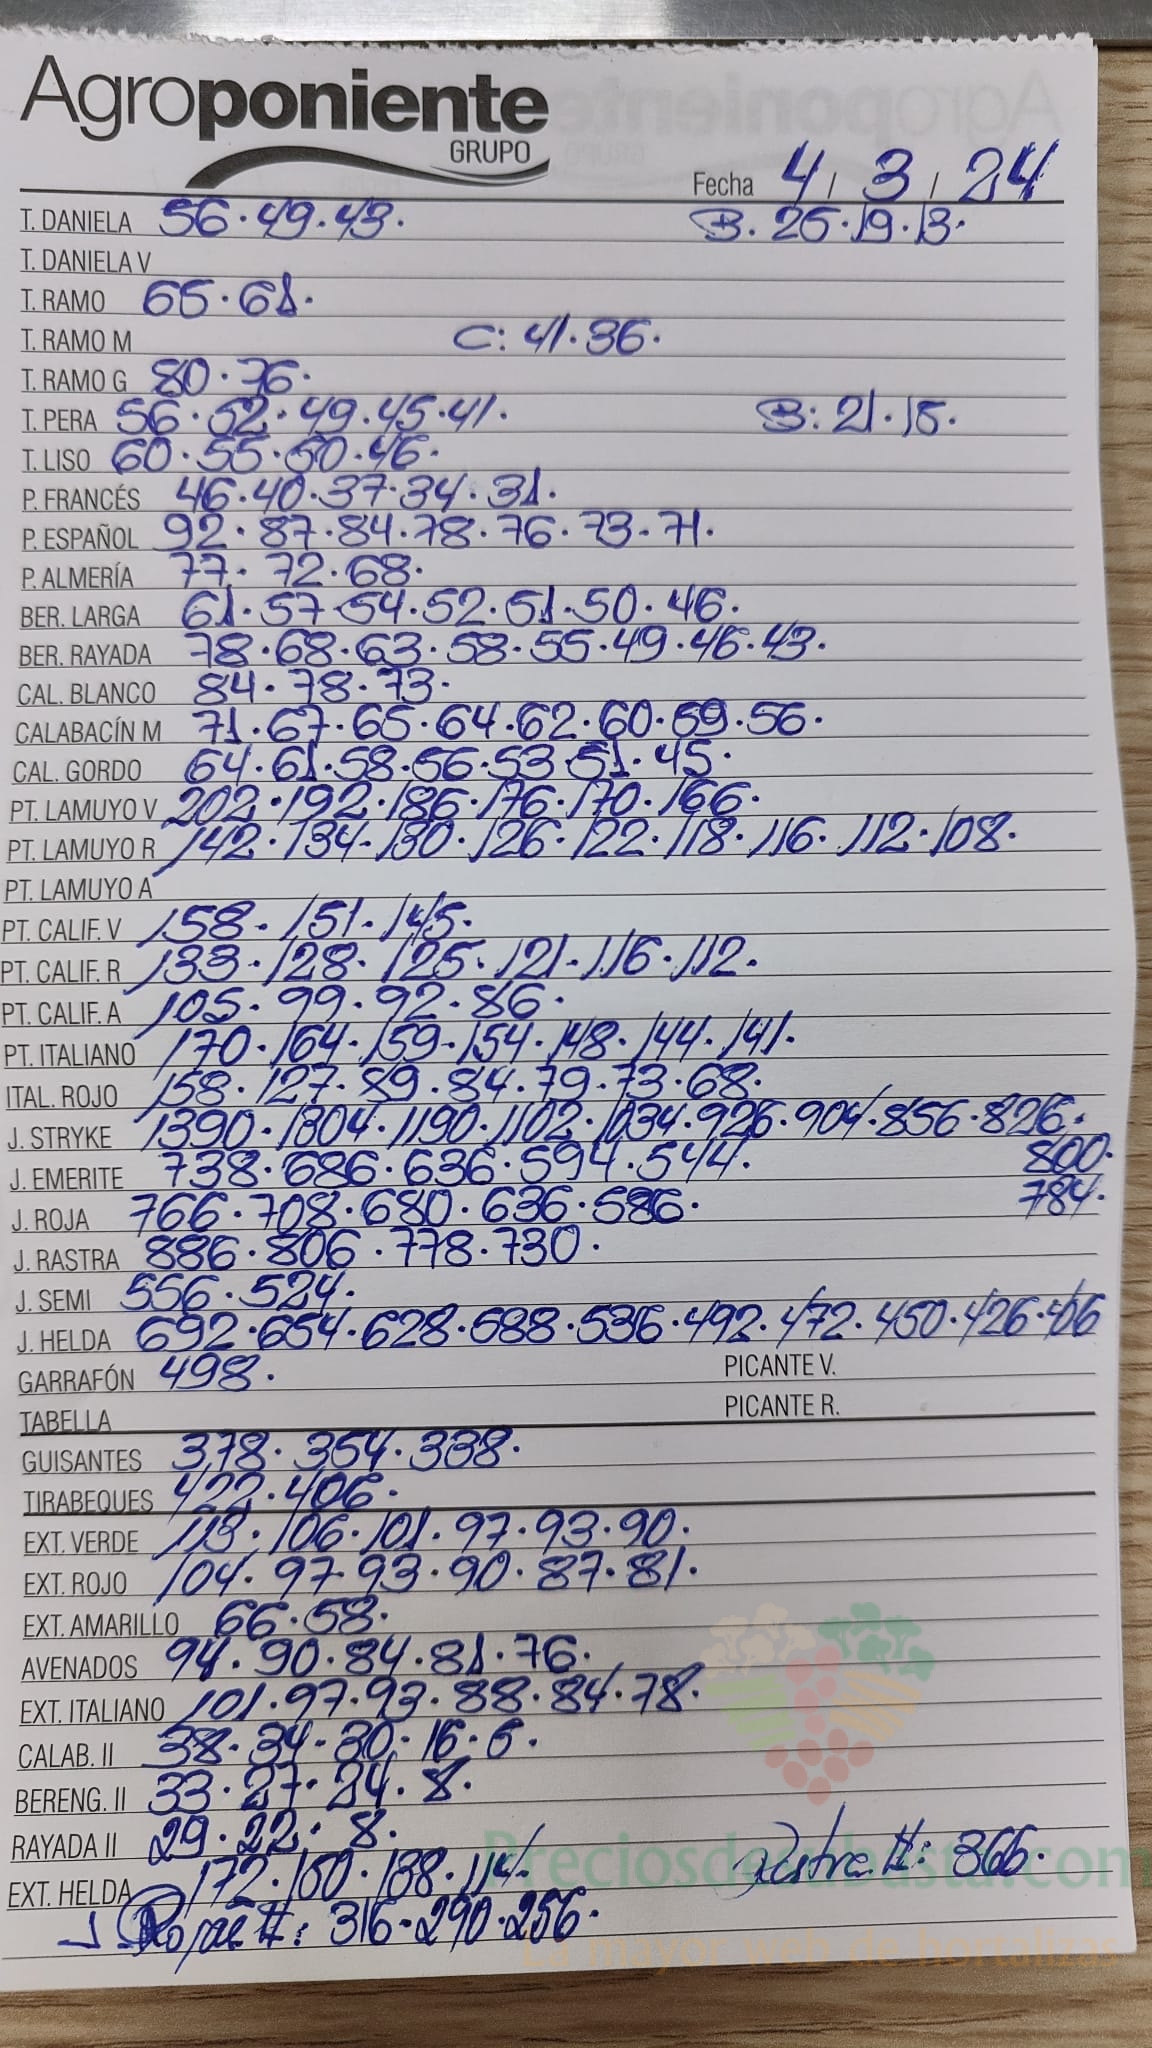 Agroponiente
GRUPO
Fecha 4 / 3 / 24
T. DANIELA 56. 49. 43. B. 25. 19. 13.
T. DANIELA V
T. RAMO 65. 61.
T. RAMO M C: 41. 36.
T. RAMO G 80. 76.
T. PERA 56. 52. 49. 45. 41. B: 21. 15.
T. LISO 60. 55. 50. 46.
P. FRANCÉS 46. 40. 37. 34. 31.
P. ESPAÑOL 92. 87. 84. 78. 76. 73. 71.
P. ALMERÍA 77. 72. 68.
BER. LARGA 61. 57. 54. 52. 51. 50. 46.
BER. RAYADA 78. 68. 63. 58. 55. 49. 46. 43.
CAL. BLANCO 84. 78. 73.
CALABACÍN M 71. 67. 65. 64. 62. 60. 59. 56.
CAL. GORDO 64. 61. 58. 56. 53. 51. 45.
PT. LAMUYO V 202. 192. 186. 176. 170. 166.
PT. LAMUYO R 142. 134. 130. 126. 122. 118. 116. 112. 108.
PT. LAMUYO A
PT. CALIF. V 158. 151. 145.
PT. CALIF. R 133. 128. 125. 121. 116. 112.
PT. CALIF. A 105. 99. 92. 86.
PT. ITALIANO 170. 164. 159. 154. 148. 144. 141.
ITAL. ROJO 158. 127. 89. 84. 79. 73. 68.
J. STRYKE 1390. 1304. 1190. 1102. 1034. 926. 904. 856. 826.
J. EMERITE 738. 686. 636. 594. 544. 800.
J. ROJA 766. 708. 680. 636. 586. 784.
J. RASTRA 886. 806. 778. 730.
J. SEMI 556. 524.
J. HELDA 692. 654. 628. 588. 536. 492. 472. 450. 426. 406
GARRAFÓN 498. PICANTE V.
TABELLA PICANTE R.
GUISANTES 378. 354. 338.
TIRABEQUES 422. 406.
EXT. VERDE 113. 106. 101. 97. 93. 90.
EXT. ROJO 104. 97. 93. 90. 87. 81.
EXT. AMARILLO 66. 58.
AVENADOS 94. 90. 84. 81. 76.
EXT. ITALIANO 101. 97. 93. 88. 84. 78.
CALAB. II 38. 34. 30. 16. 6.
BERENG. II 33. 27. 24. 8.
RAYADA II 29. 22. 8.
EXT. HELDA 172. 150. 138. 114. Rastra II: 366.
J. Roja II: 316. 290. 256.
Preciosdesubasta.com
La mayor web de hortalizas